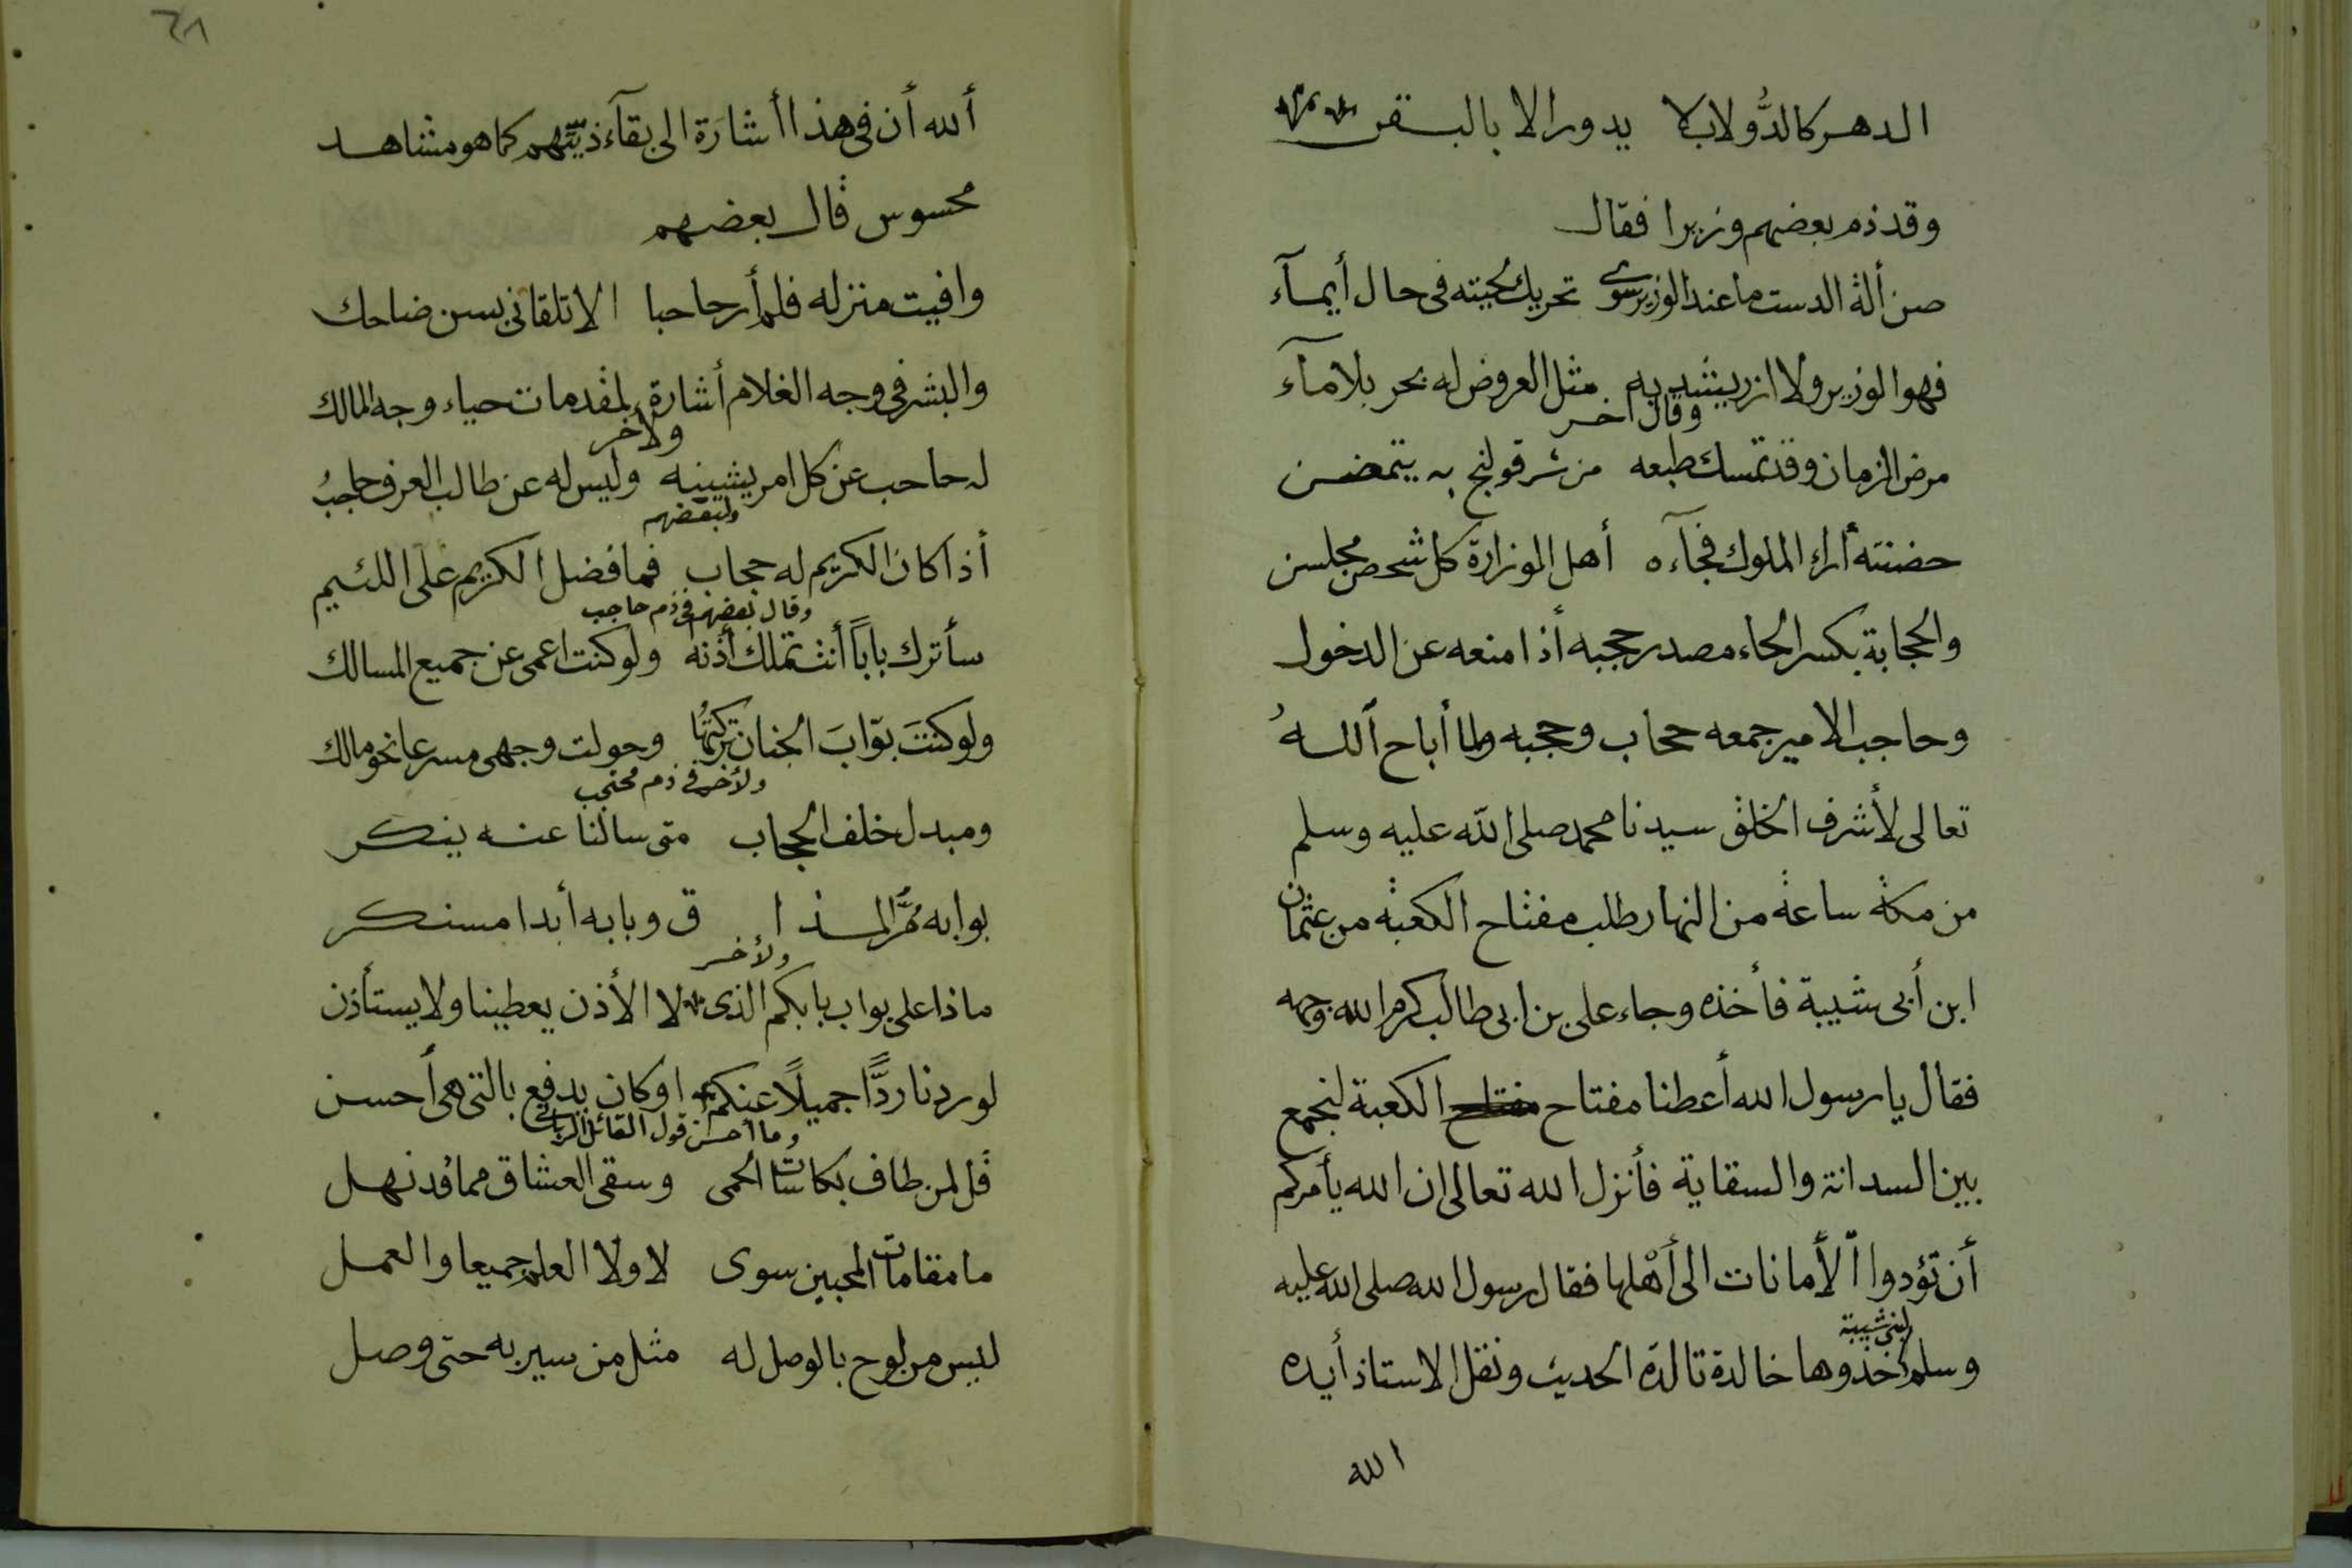 الدهر كالدُّولاب لا يدور الا بالبقر
وقد ذم بعضهم وزيرا فقال
من ألة الدست ما عند الوزير سوى تحريك لحيته فى حال أيمآء
فهو الوزير ولا ازر يشد به مثل العروض له بحر بلا مآء
وقال اخر
مرض الزمان وقد تمسك طبعه من شر قولنج به يتمغص
حضنته أراء الملوك فجآءه أهل الوزارة كل شخص مجلس
والحجابة بكسر الحاء مصدر حجبه أذا منعه عن الدخول
وحاجب الامير جمعه حجاب وحجبه ولما أباح اللهُ
تعالى لأشرف الخلق سيدنا محمد صلى الله عليه وسلم
من مكة ساعة من النهار طلب مفتاح الكعبة من عثمان
ابن أبى شيبة فأخذه وجاء على بن ابى طالب كرم الله وجهه
فقال يا رسول الله أعطنا مفتاح مفتاح الكعبة لنجمع
بين السدانة والسقاية فأنزل الله تعالى ان الله يأمركم
أن تؤدوا الأمانات الى أهْلها فقال رسول الله صلى الله عليه
لبنى شيبة
وسلم خذوها خالدة تالدة الحديث ونقل الاستاذ أيده
الله
٢٨
ألله أن فى هذا أشارة الى بقآء ذريّتهم كما هو مشاهد
محسوس قال بعضهم
وافيت منزله فلم أر حاجبا الا تلقانى بسن ضاحك
والبشر فى وجه الغلام أشارة لمقدمات حياء وجه المالك
ولأخر
له حاجب عن كل امر يشينه وليس له عن طالب العرف حاجبُ
ولبعضهم
أذا كان الكريم له حجاب فما فضل الكريم على اللئيم
وقال بعضهم فى ذم حاجب
سأترك باباً أنت تملك أذنه ولو كنت اعمى عن جميع المسالك
ولو كنتَ بوّابَ الجنان تركتُها وحولت وجهى مسرعا نحو مالك
ولأخر فى ذم محتجب
ومبدل خلف الحجاب متى سالنا عنه ينكر
بوابه مُرَّ المذا ق وبابه أبدا مسنكر
ولأخر
ماذا على بواب بابكم الذى لا الأذن يعطينا ولا يستأذن
لو ردنا ردًّا جميلًا عنكم او كان يدفع بالتى هى أحسن
وما أحسن قول القائل الربانى
قل لمن طاف بكاسات الحمى وسقى العشاق مما قد نهل
ما مقامات المحبين سوى لا ولا العلم جميعا والعمل
ليس من لوح بالوصل له مثل من سير به حتى وصل